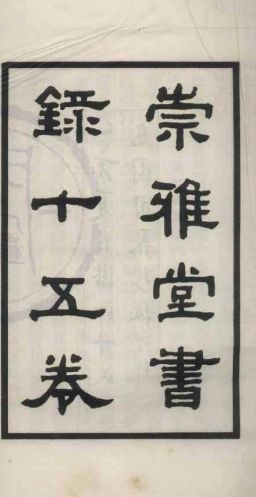 崇雅堂書
錄十五卷